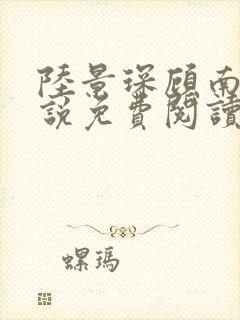 陸景琛顧南
說免費閱讀
螺瑪